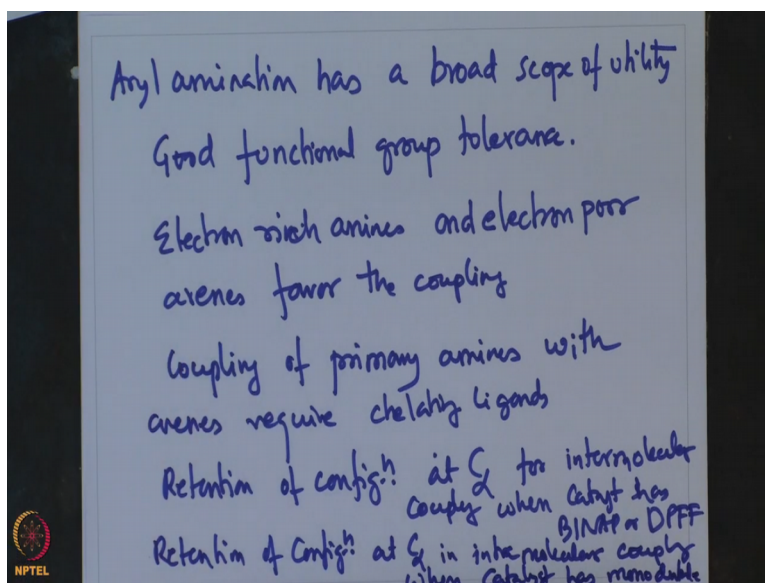 Aryl amination has a broad scope of utility
Good functional group tolerance.
Electron rich amines and electron poor
arenes favor the coupling
Coupling of primary amines with
arenes require chelating ligands
Retention of config.n at Cα for intermolecular
coupling when catalyst has
BINAP or DPFF
Retention of Config.n at Cα in intramolecular coupling
when catalyst has
NPTEL